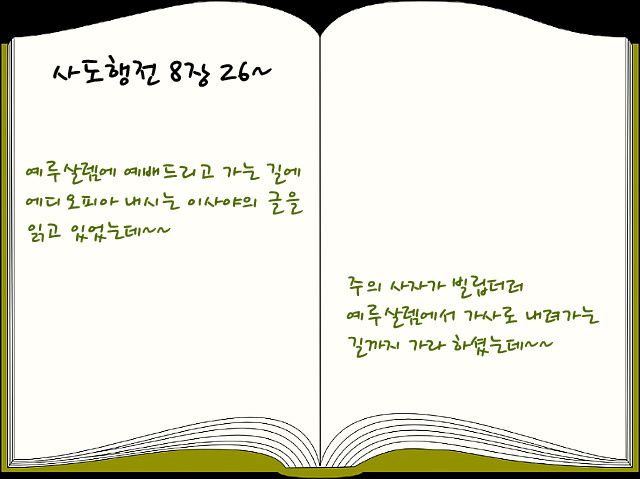 사도행전 8장 26~
예루살렘에 예배드리고 가는 길에
에디오피아 내시는 이사야의 글을
읽고 있었는데~~
주의 사자가 빌립더러
예루살렘에서 가사로 내려가는
길까지 가라 하셨는데~~